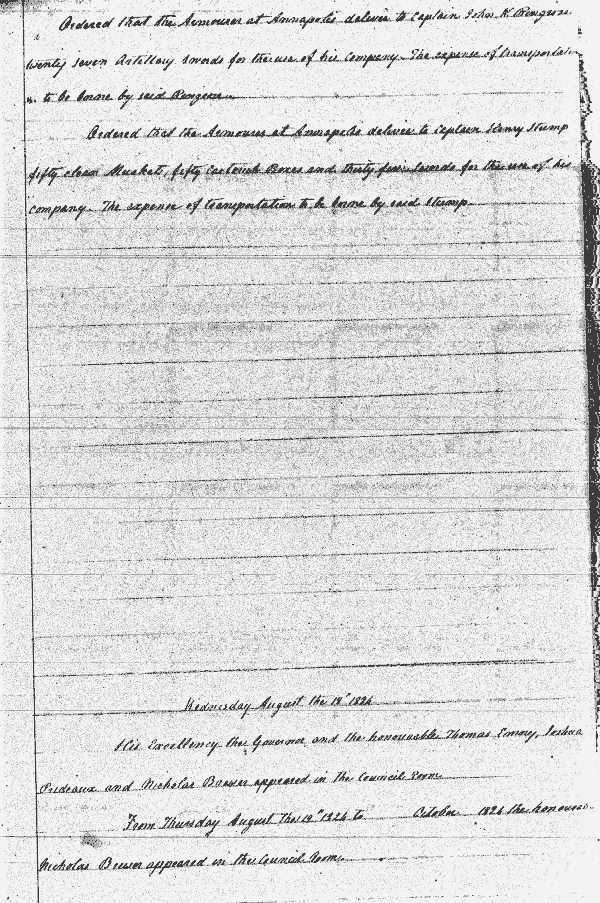 Ordered that the Armourer at Annapolis deliver to Captain John K
twenty seven Artillery Swords for the use of his Company. The expense of transportation
to be borne by said
Ordered that the Armourer at Annapolis deliver to Captain Henry Stump
fifty clean Muskets, fifty Cartouch Boxes and thirty four Swords for the use of his
company. The expense of transportation to be borne by said Stump.
Wednesday August the 18th 1824
His Excellency the Governor and the honourable Thomas Emory, Joshua
Prideaux and Nicholas Brewer appeared in the Council Room
From Thursday August the 19th 1824 to October 1824 the
Nicholas Brewer appeared in the Council Room.